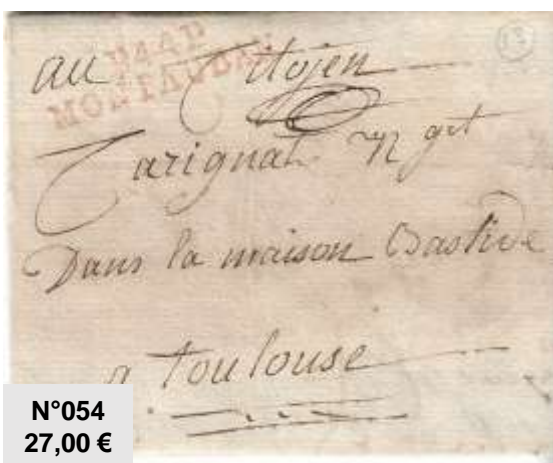 P44P
MONTAUBAN
13
au Citoyen
Dans la maison Bastide
a Toulouse
N°054
27,00 €